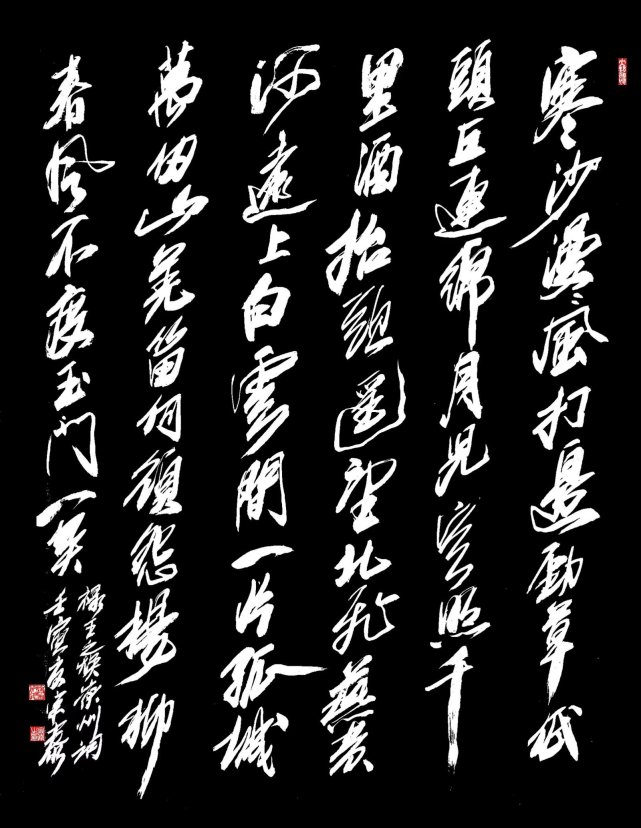 寒沙漫風打邊勁草低
頭丘連綿月兒空照千
里酒抬頭遥望北飛燕黄
河遠上白雲間一片孤城
萬仞山羌笛何須怨楊柳
春風不度玉門关
王之渙凉州詞
壬寅